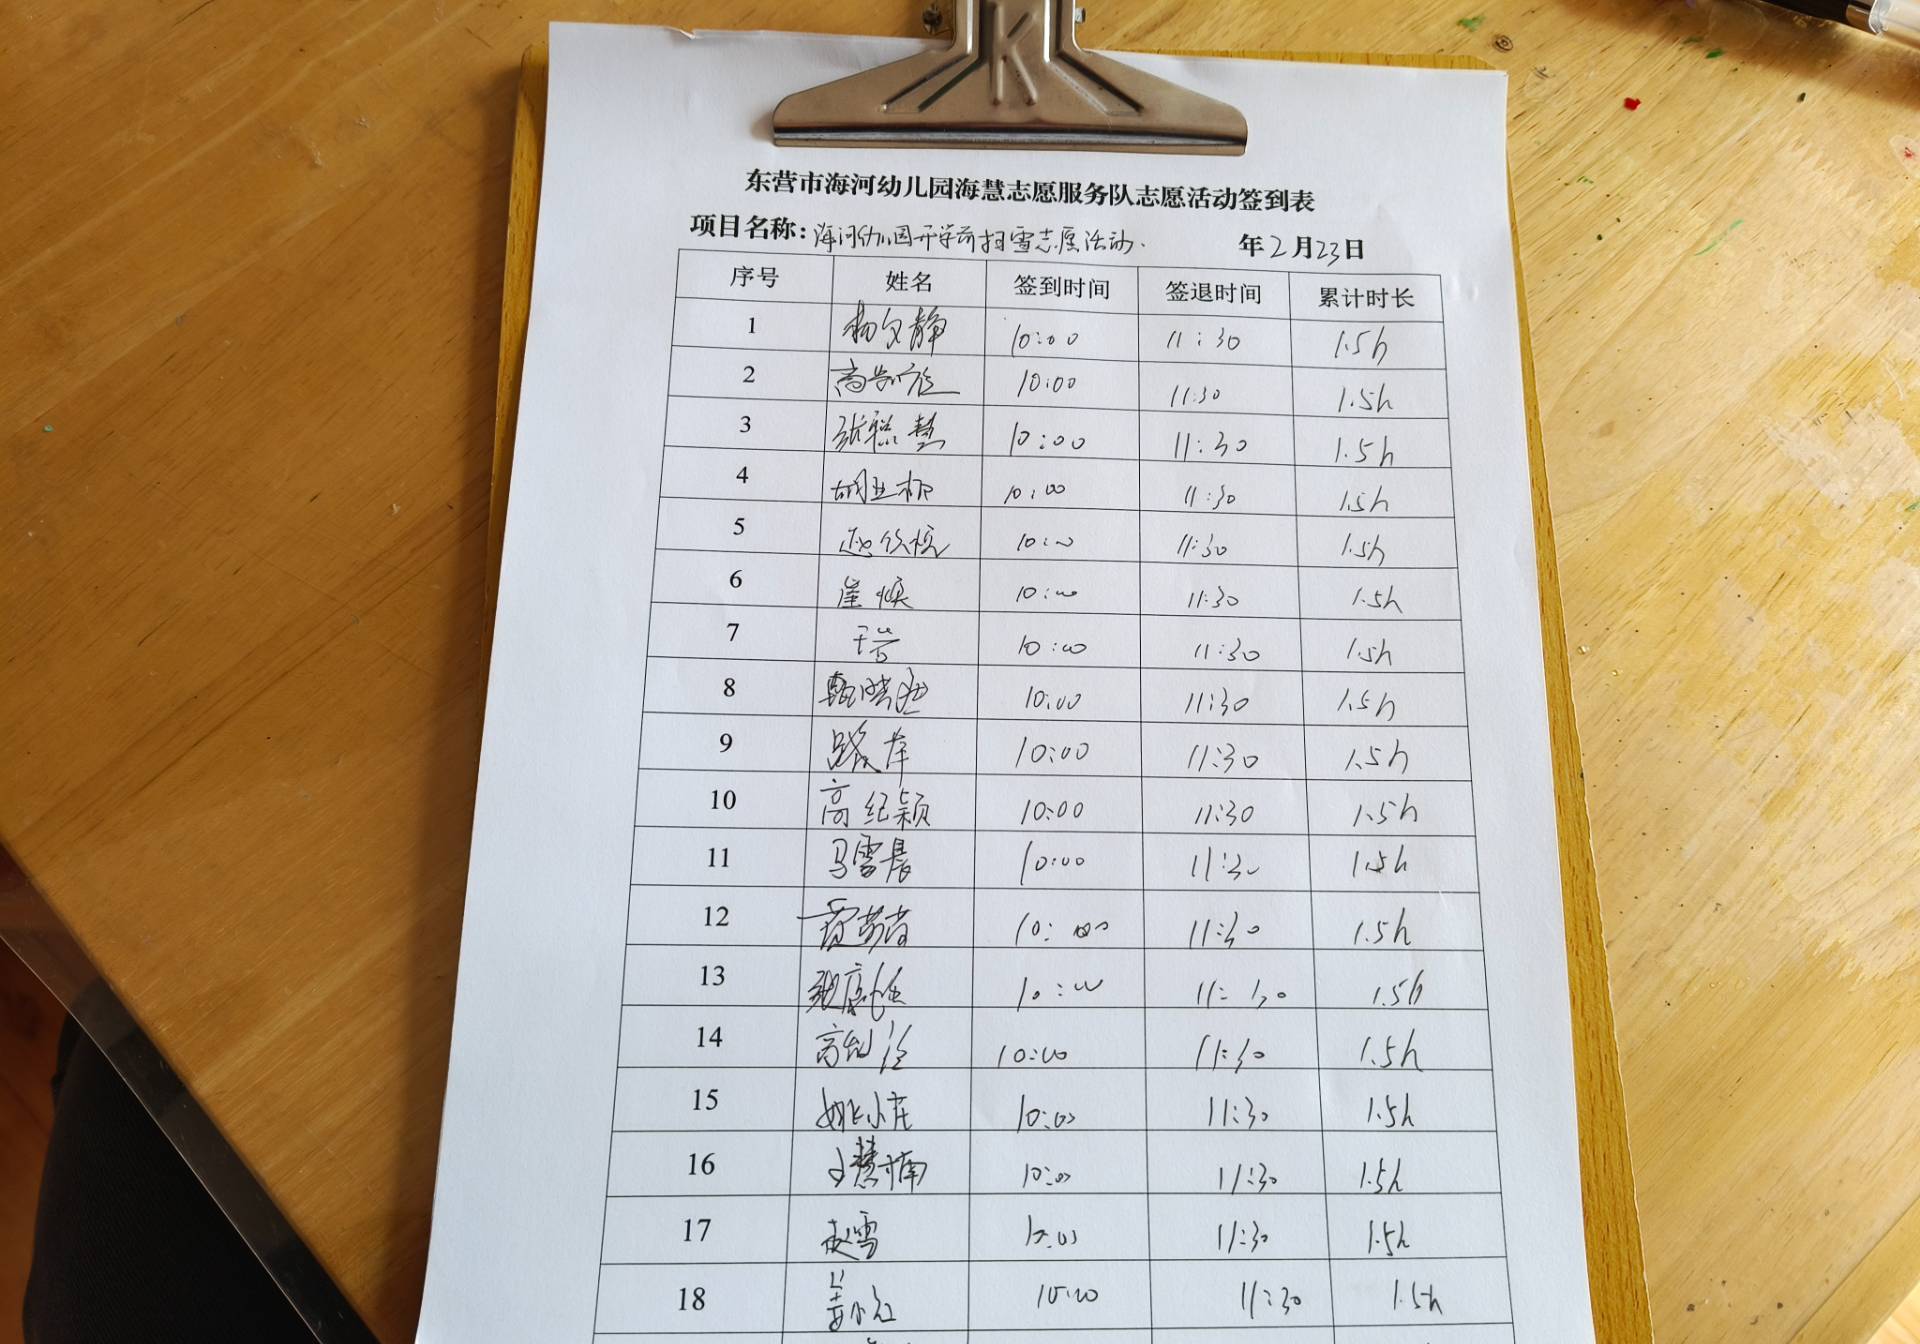 东营市海河幼儿园海慧志愿服务队志愿活动签到表
项目名称：海河幼儿园开学前扫雪志愿活动. 年2月23日
序号 姓名 签到时间 签退时间 累计时长
1 杨文静 10:00 11:30 1.5h
2 高 10:00 11:30 1.5h
3 张 慧 10:00 11:30 1.5h
4 胡亚 10:00 11:30 1.5h
5 10:00 11:30 1.5h
6 崔焕 10:00 11:30 1.5h
7 10:00 11:30 1.5h
8 韩晓 10:00 11:30 1.5h
9 路 10:00 11:30 1.5h
10 高纪颖 10:00 11:30 1.5h
11 马雪晨 10:00 11:30 1.5h
12 10:00 11:30 1.5h
13 10:00 11:30 1.5h
14 高 10:00 11:30 1.5h
15 姚小庄 10:00 11:30 1.5h
16 王慧楠 10:00 11:30 1.5h
17 赵雪 10:00 11:30 1.5h
18 姜小红 10:00 11:30 1.5h